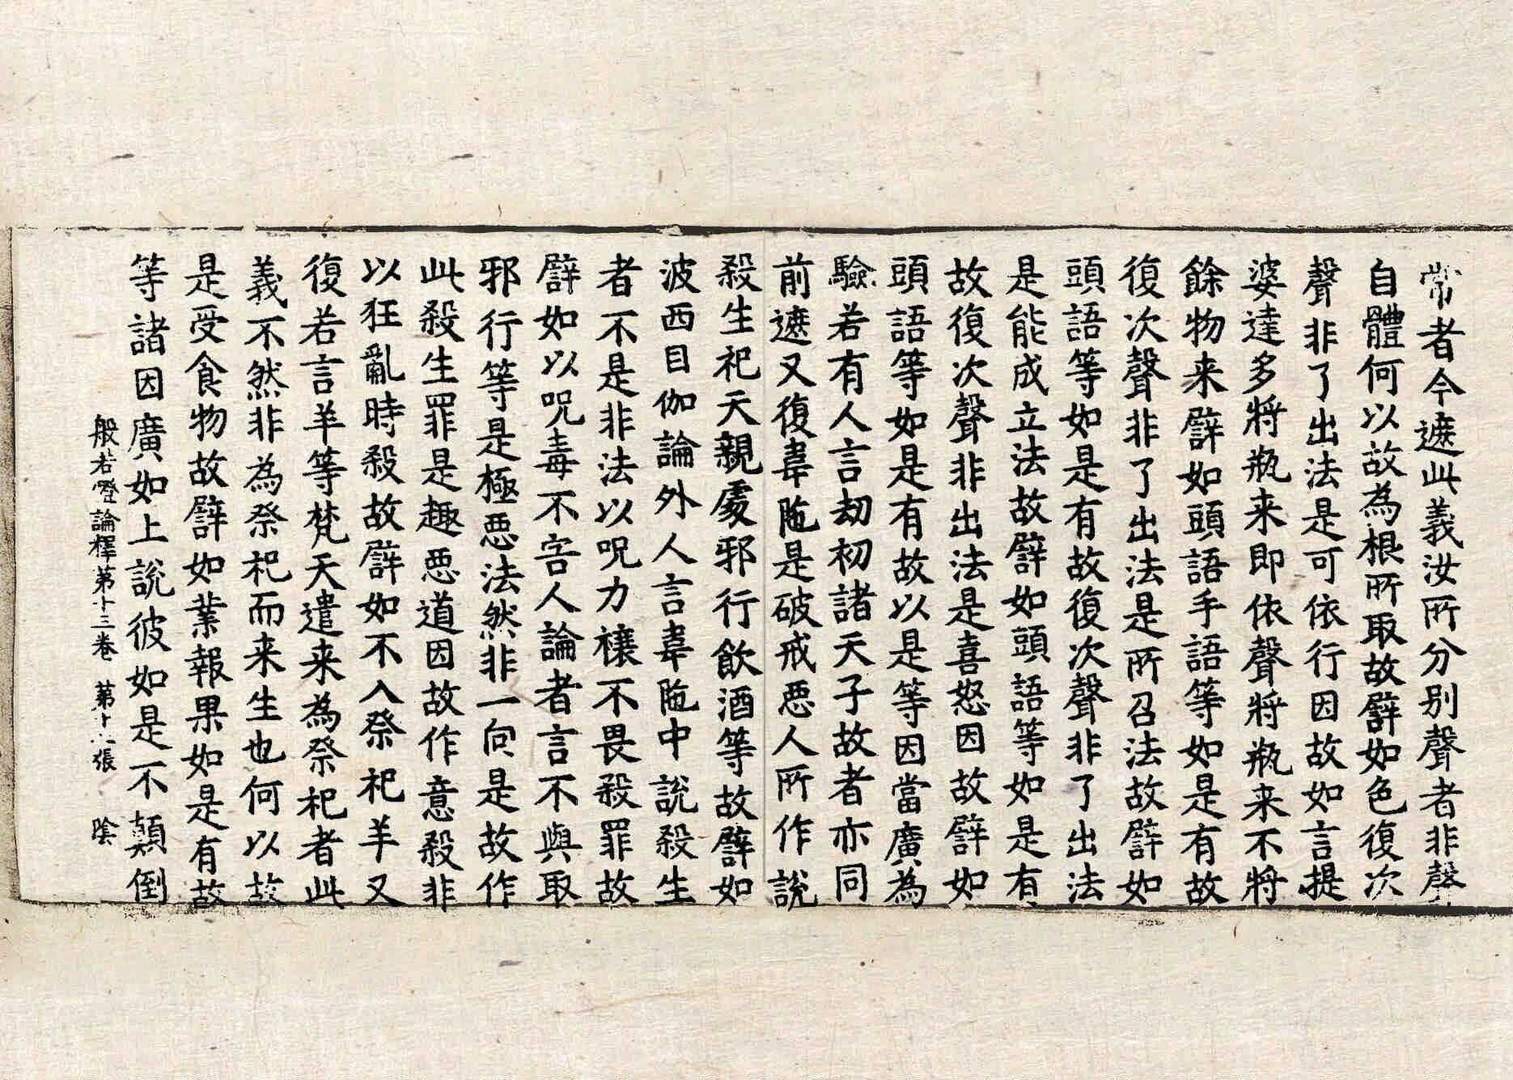 常者今遮此義汝所分別聲者非聲
自體何以故為根所取故譬如色復次
聲非了出法是可依行因故如言提
婆達多將瓶来即依聲將瓶来不將
餘物来譬如頭語手語等如是有故
復次聲非了出法是所召法故譬如
頭語等如是有故復次聲非了出法
是能成立法故譬如頭語等如是有
故復次聲非出法是喜怒因故譬如
頭語等如是有故以是等因當廣為
驗若有人言劫初諸天子故者亦同
前遮又復韋陁是破戒惡人所作說
殺生祀天親處邪行飲酒等故譬如
波西目伽論外人言韋陁中說殺生
者不是非法以呪力禳不畏殺罪故
譬如以呪毒不害人論者言不與取
邪行等是極惡法然非一向是故作
此殺生罪是趣惡道因故作意殺非
以狂亂時殺故譬如不入祭祀羊又
復若言羊等梵天遣来為祭祀者此
義不然非為祭祀而来生也何以故
是受食物故譬如業報果如是有故
等諸因廣如上說彼如是不顛倒
般若燈論釋第十三卷 第十張 陰